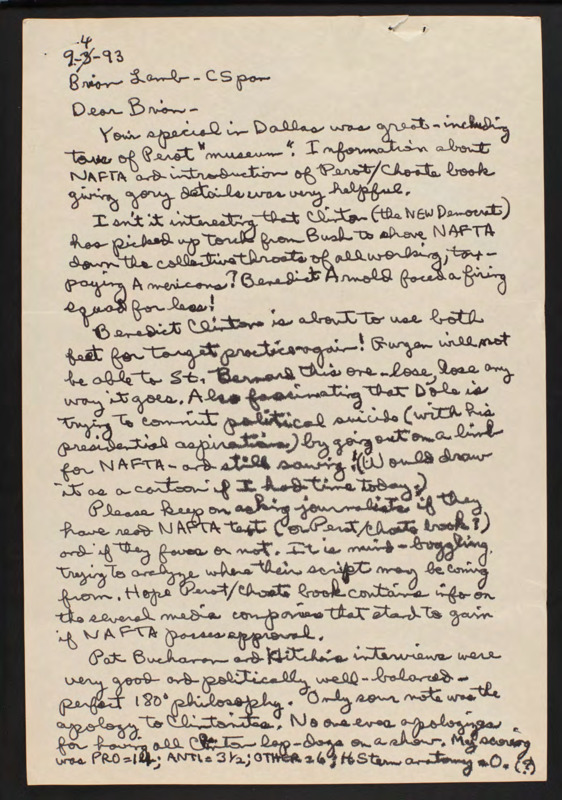 9-4-93
Brian Lamb - CSpan
Dear Brian -
Your special in Dallas was great - including
tour of Perot "museum". Information about
NAFTA and introduction of Perot/Choate book
giving gory details was very helpful.
Isn't it interesting that Clinton (the NEW Democrat)
has picked up torch from Bush to shove NAFTA
down the collective throats of all working, tax-
paying Americans? Benedict Arnold faced a firing
squad for less!
Benedict Clinton is about to use both
feet for target practice again! Gergen will not
be able to St. Bernard this one - lose, lose any
way it goes. Also fascinating that Dole is
trying to commit political suicide (with his
presidential aspirations) by going out on a limb
for NAFTA - and still sawing! (Would draw
it as a cartoon if I had time today.)
Please keep on asking journalists if they
have read NAFTA text (or Perot/Choate book?)
and if they favor or not. It is mind-boggling,
trying to analyze where their script may be coming
from. Hope Perot/Choate book contains info on
the several media companies that stand to gain
if NAFTA passes approval.
Pat Buchanan and Hitchens interviews were
very good and politically well-balanced -
perfect 180° philosophy. Only sour note was the
apology to Clintonites. No one ever apologizes
for having all Clinton lap-dogs on a show. My scoring
was PRO=14; ANTI=3½; OTHER=6; H Stern anatomy=0. (?)